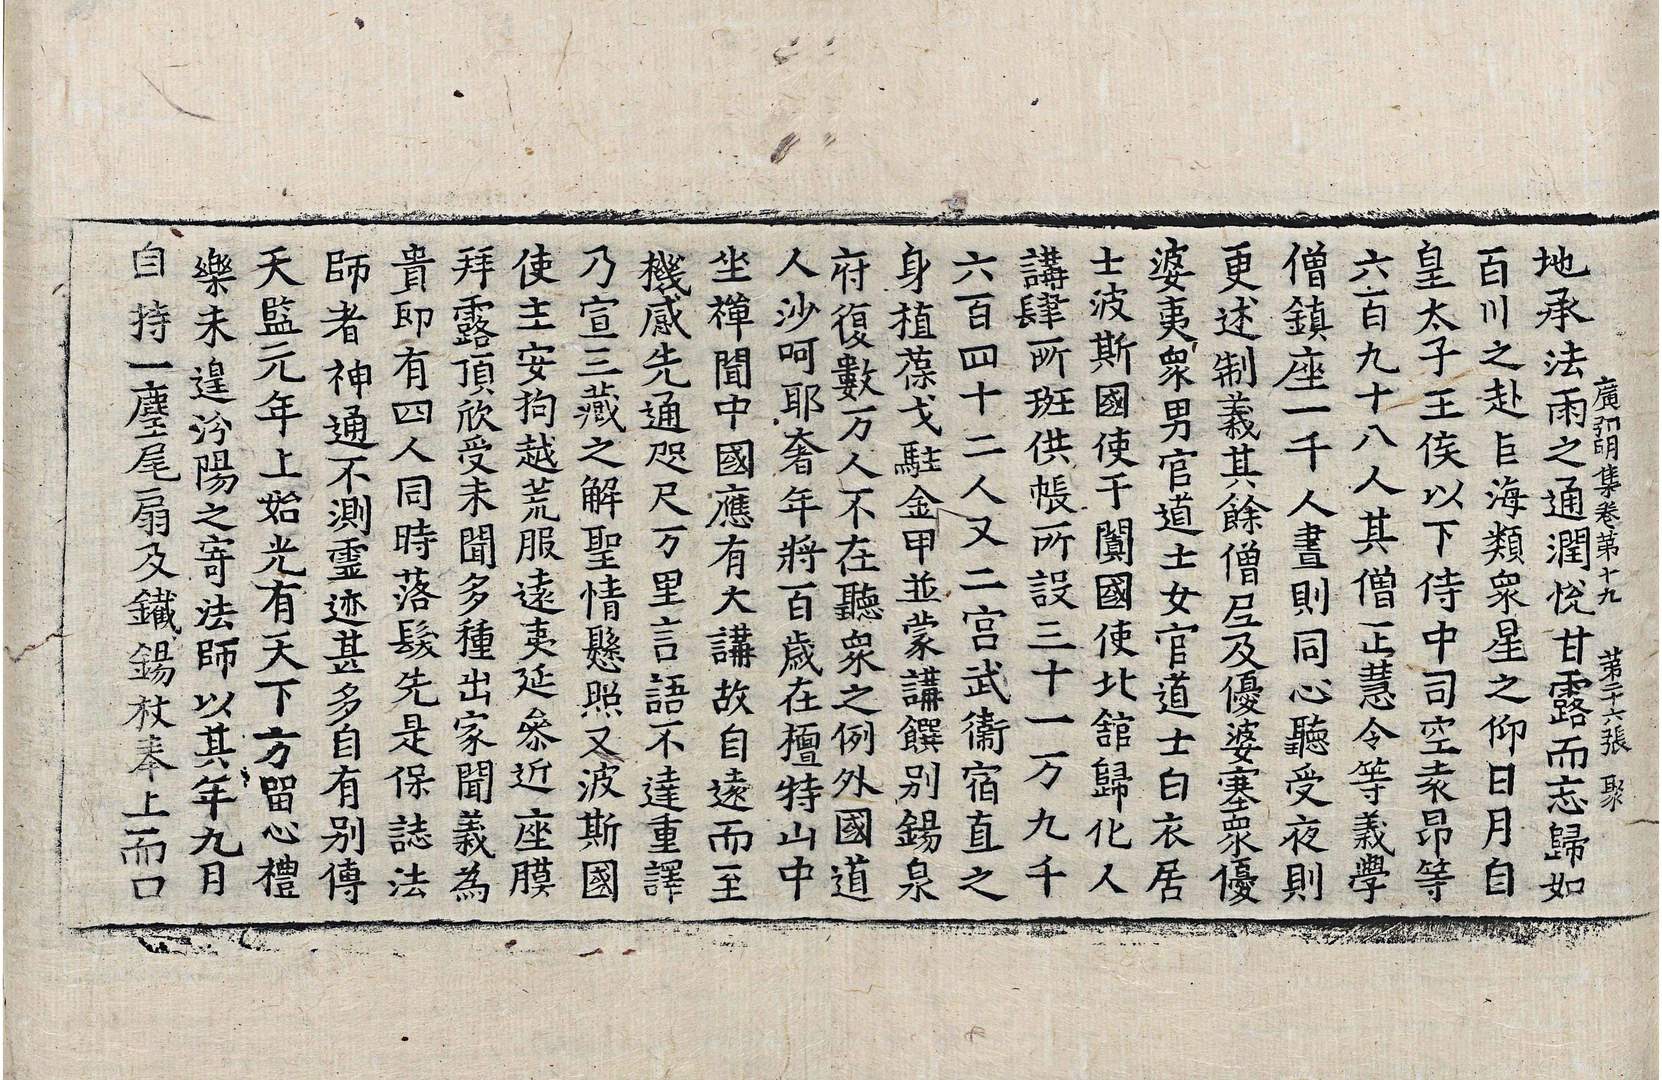 廣弘明集卷第十九 第二十六張 聚
地承法雨之通潤悅甘露而忘歸如
百川之赴巨海類衆星之仰日月自
皇太子王侯以下侍中司空袁昂等
六百九十八人其僧正慧令等義學
僧鎮座一千人晝則同心聽受夜則
更述制義其餘僧尼及優婆塞衆優
婆夷衆男官道士女官道士白衣居
士波斯國使于闐國使北舘歸化人
講肆所班供帳所設三十一万九千
六百四十二人又二宮武衞宿直之
身植葆戈駐金甲並蒙講饌别錫泉
府復數万人不在聽衆之例外國道
人沙呵耶奢年將百歲在檀特山中
坐禪聞中國應有大講故自遠而至
機感先通咫尺万里言語不達重譯
乃宣三藏之解聖情懸照又波斯國
使主安拘越荒服遠夷延叅近座膜
拜露頂欣受未聞多種出家聞義為
貴即有四人同時落髮先是保誌法
師者神通不測霊迹甚多自有别傳
天監元年上始光有天下方留心禮
樂未遑汾陽之寄法師以其年九月
自持一麈尾扇及鐵錫杖奉上而口